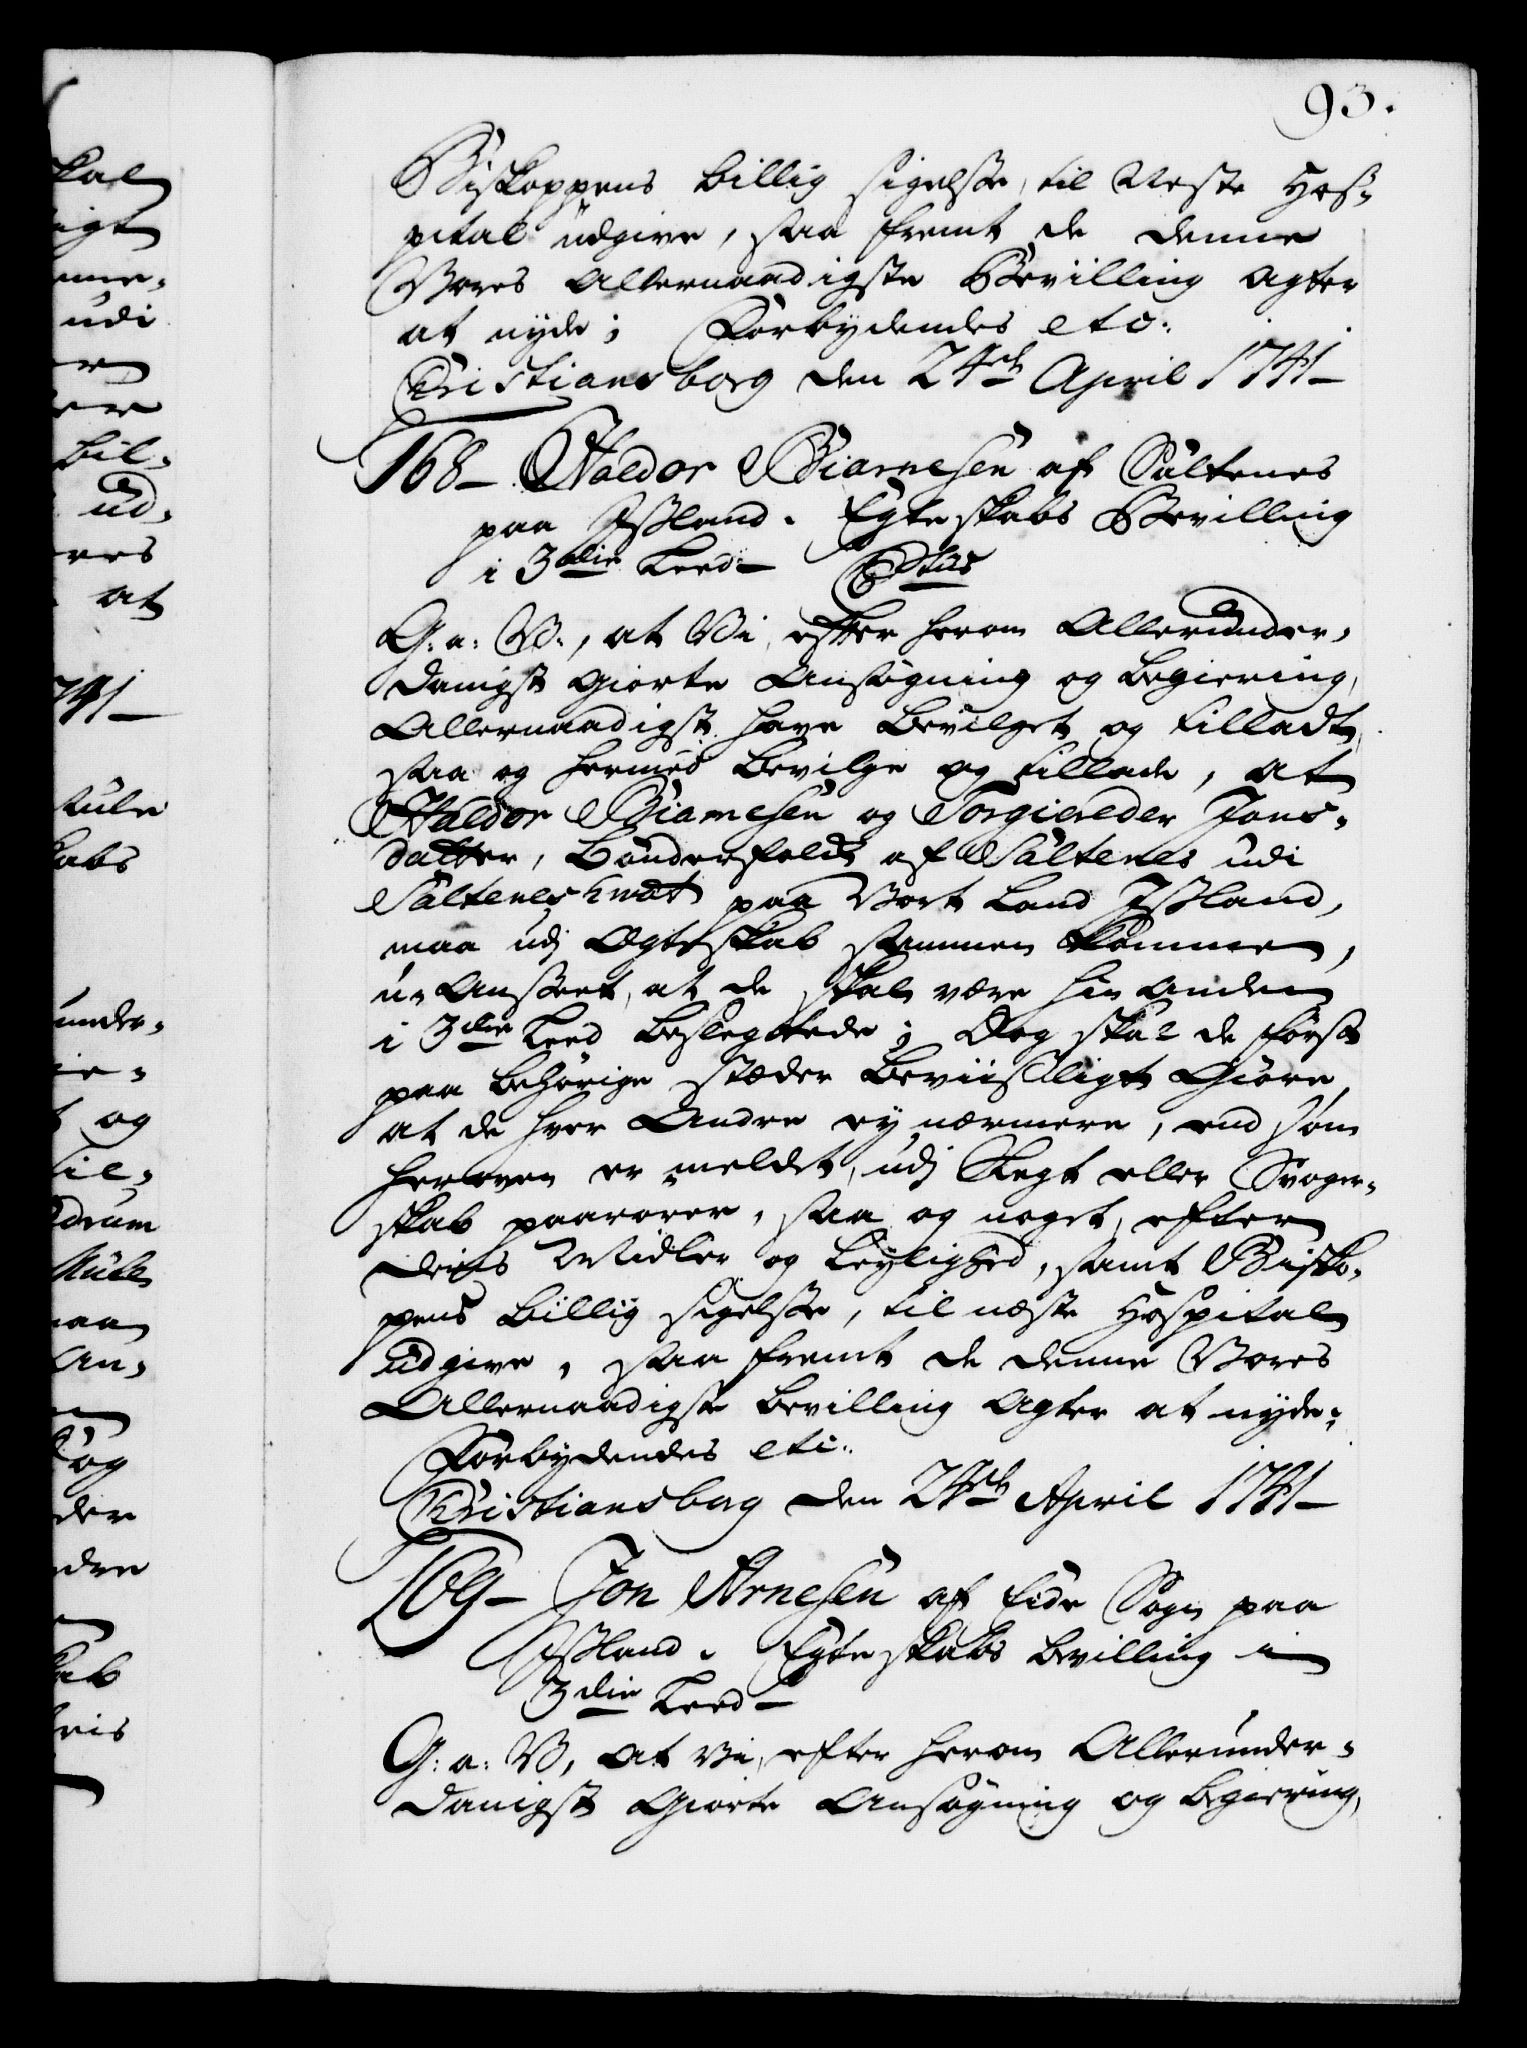 93.
Biskoppens billig sigelse, til Neste Hos-
pital udgive, saa fremt de denne
Vores Allernaadigste Bevilling agter
at nyde; Forbydendes etc:
Christiansborg den 24de April 1741
168 Haldor Biarnesen af Saltenes
paa Iisland. Egteskabs Bevilling
i 3die Leed
G: a: V:, at Vi, efter herom Allerunder-
danigst giorte Ansøgning og Begiering,
Allernaadigst have bevilget og tilladt,
saa og hermed bevilge og tillade, at
Haldor Biarnesen og Torgiereder Jons-
datter, Bønderfolk af Saltenes udi
Saltenes paa Vort Land Iisland,
maa udj Ægteskab sammen komme,
u-Anseet, at de skal være hin anden
i 3die Leed beslegtede; Dog skal de først
paa behørige stæder beviisligt Giøre,
at de hver Andre ey nærmere, end som
heroven er meldet, udj Slegt eller Svoger-
skab paarører, saa og noget, efter
deris Midler og Leylighed, samt Bisko-
pens billig sigelse, til næste Hospital
udgive, saa fremt de denne Vores
Allernaadigste bevilling Agter at nyde;
Forbydendes etc:
Christiansborg den 24de April 1741
169 Jon Arnesen af Eide Sogn paa
Iisland. Egteskabs bevilling i
3die Leed
G: a: V, at Vi, efter herom Allerunder-
danigst Giorte Ansøgning og begiering,